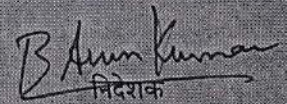 B Arun Kumar
निदेशक